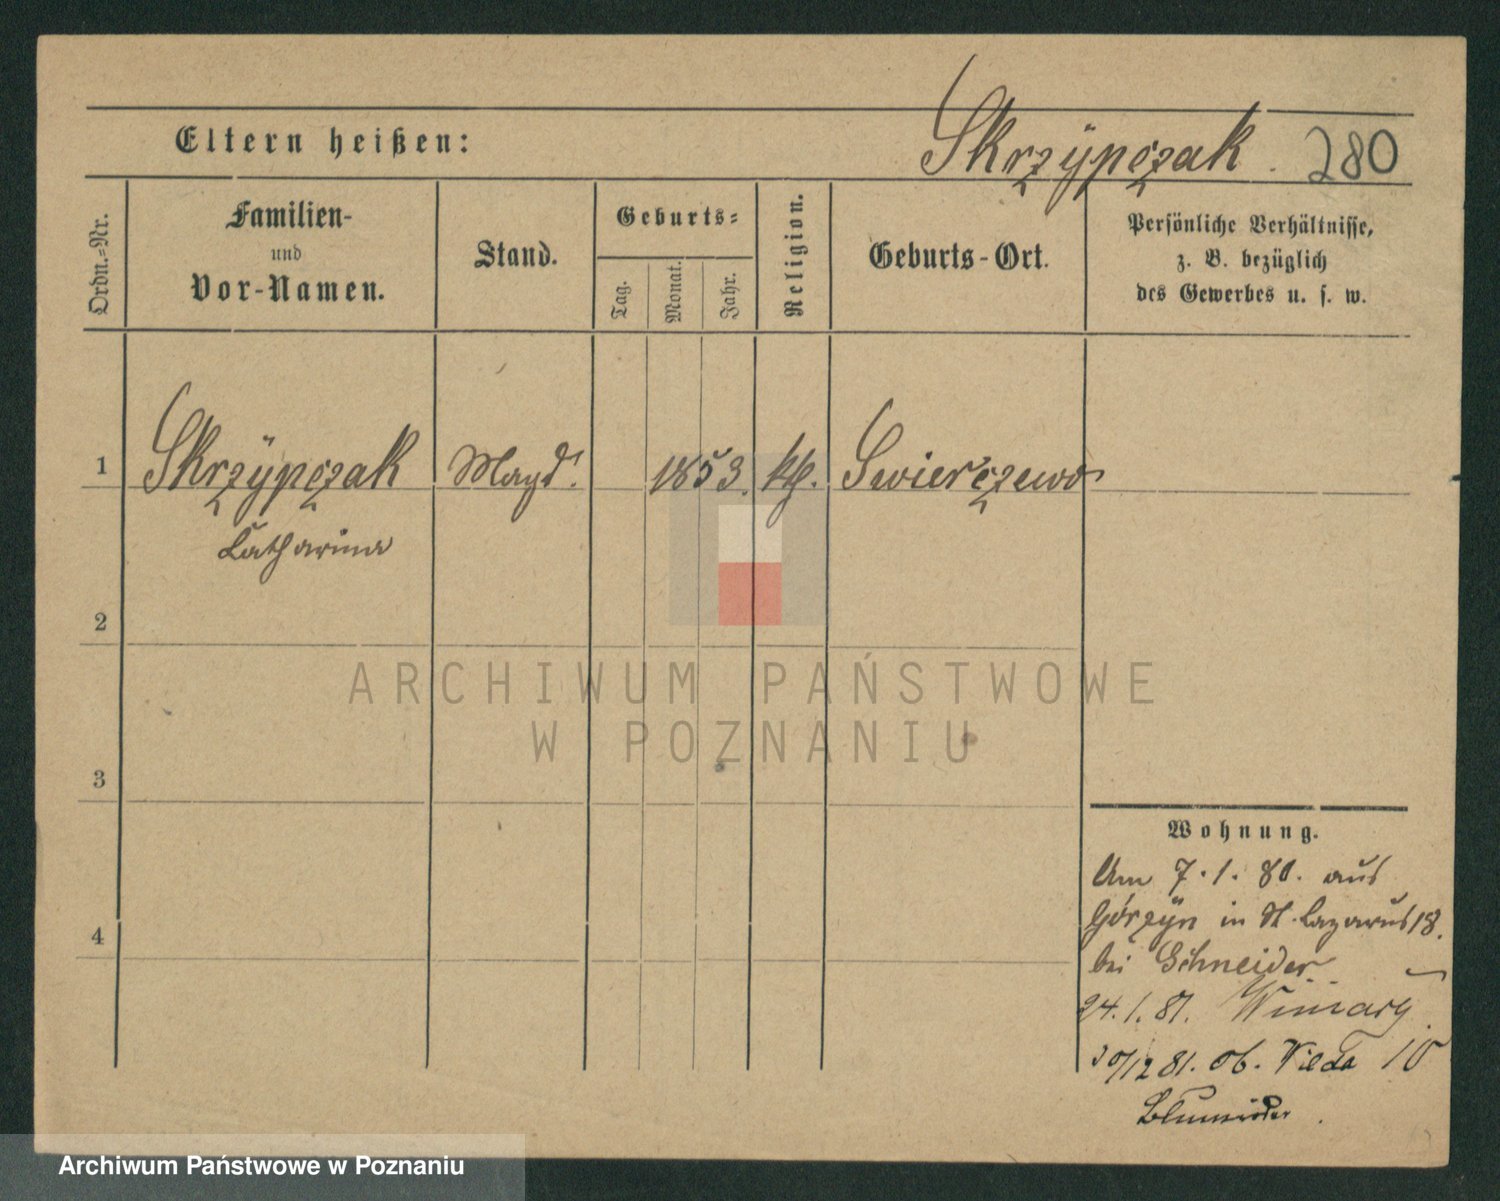 Eltern heißen:
Skrzÿpczak. 280
Ordn.-Nr.
Familien-
und
Vor-Namen.
Stand.
Geburts-
Tag.
Monat.
Jahr.
Religion.
Geburts-Ort.
Persönliche Verhältnisse,
z. B. bezüglich
des Gewerbes u. s. w.
1 Skrzÿpczak Magd. 1853. kth. Swierczewo
Catharina
2
3
4
Wohnung.
Um 7.1.80. aus
Górzÿn in St. Lazarus 18.
bei Schneider
24.1.81.
30/12 81. Ob. Wilda 10
ARCHIWUM PAŃSTWOWE
W POZNANIU
Archiwum Państwowe w Poznaniu